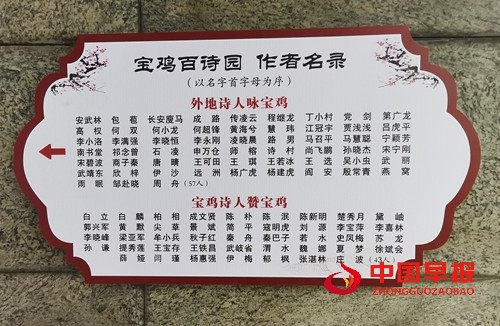 宝鸡百诗园 作者名录
（以名字首字母为序）
外地诗人咏宝鸡
安武林 包苞 长安瘦马 成路 传凌云 程继龙 丁小村 党剑 第广龙
高权 何双 何小龙 何超锋 黄海兮 慧玮 江冠宇 贾浅浅 吕虎平
李小洛 李满强 李晓恒 李永刚 凌晓晨 路男 马召平 马慧聪 宁颖芳
南书堂 祁念曾 石凌 申万仓 师榕 诗村 尚飞鹏 孙晓杰 宋宁刚
宋碧波 商子秦 唐晴 王可田 王琪 王若冰 王选 吴小虫 武丽
武靖东 欣梓 伊沙 远洲 杨广虎 杨建虎 阎安 殷常青 燕窝
雨眠 邹赴晓 周舟 （57人）
宝鸡诗人赞宝鸡
白立 白麟 柏相 成文贤 陈朴 陈泯 陈新明 楚秀月 黛岫
郭兴军 黄默 尖草 景斌 简平 寇明虎 刘源 李宝萍 李喜林
李晓峰 梁亚军 牟小兵 秋子红 秦舟 秦巴子 若水 史凤梅 苏龙
孙谦 提秀莲 王宝存 王铁昌 武岐省 渭水 魏娜 夏梦 徐斌会
薛娅 闫瑾 杨惠强 伊梅 郁枫 张湛林 庄波 （43人）
中国早报
ZHONGGUOZAOBAO